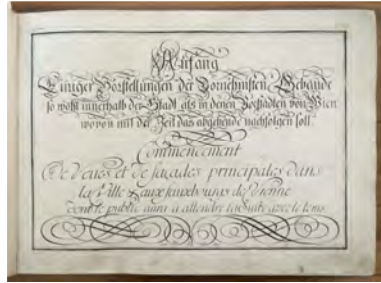 Anfang
Einiger Vorstellungen der Vornehmsten Gebäude
so wohl innerhalb der Stadt als in denen Vorstädten von Wien
wovon mit der Zeit das abgehende nachfolgen soll.
Commencement
De Veües et de façades principales dans
la Ville & aux fauxbourgs de Vienne
dont le public aura a attendre la Suite avec le tems.